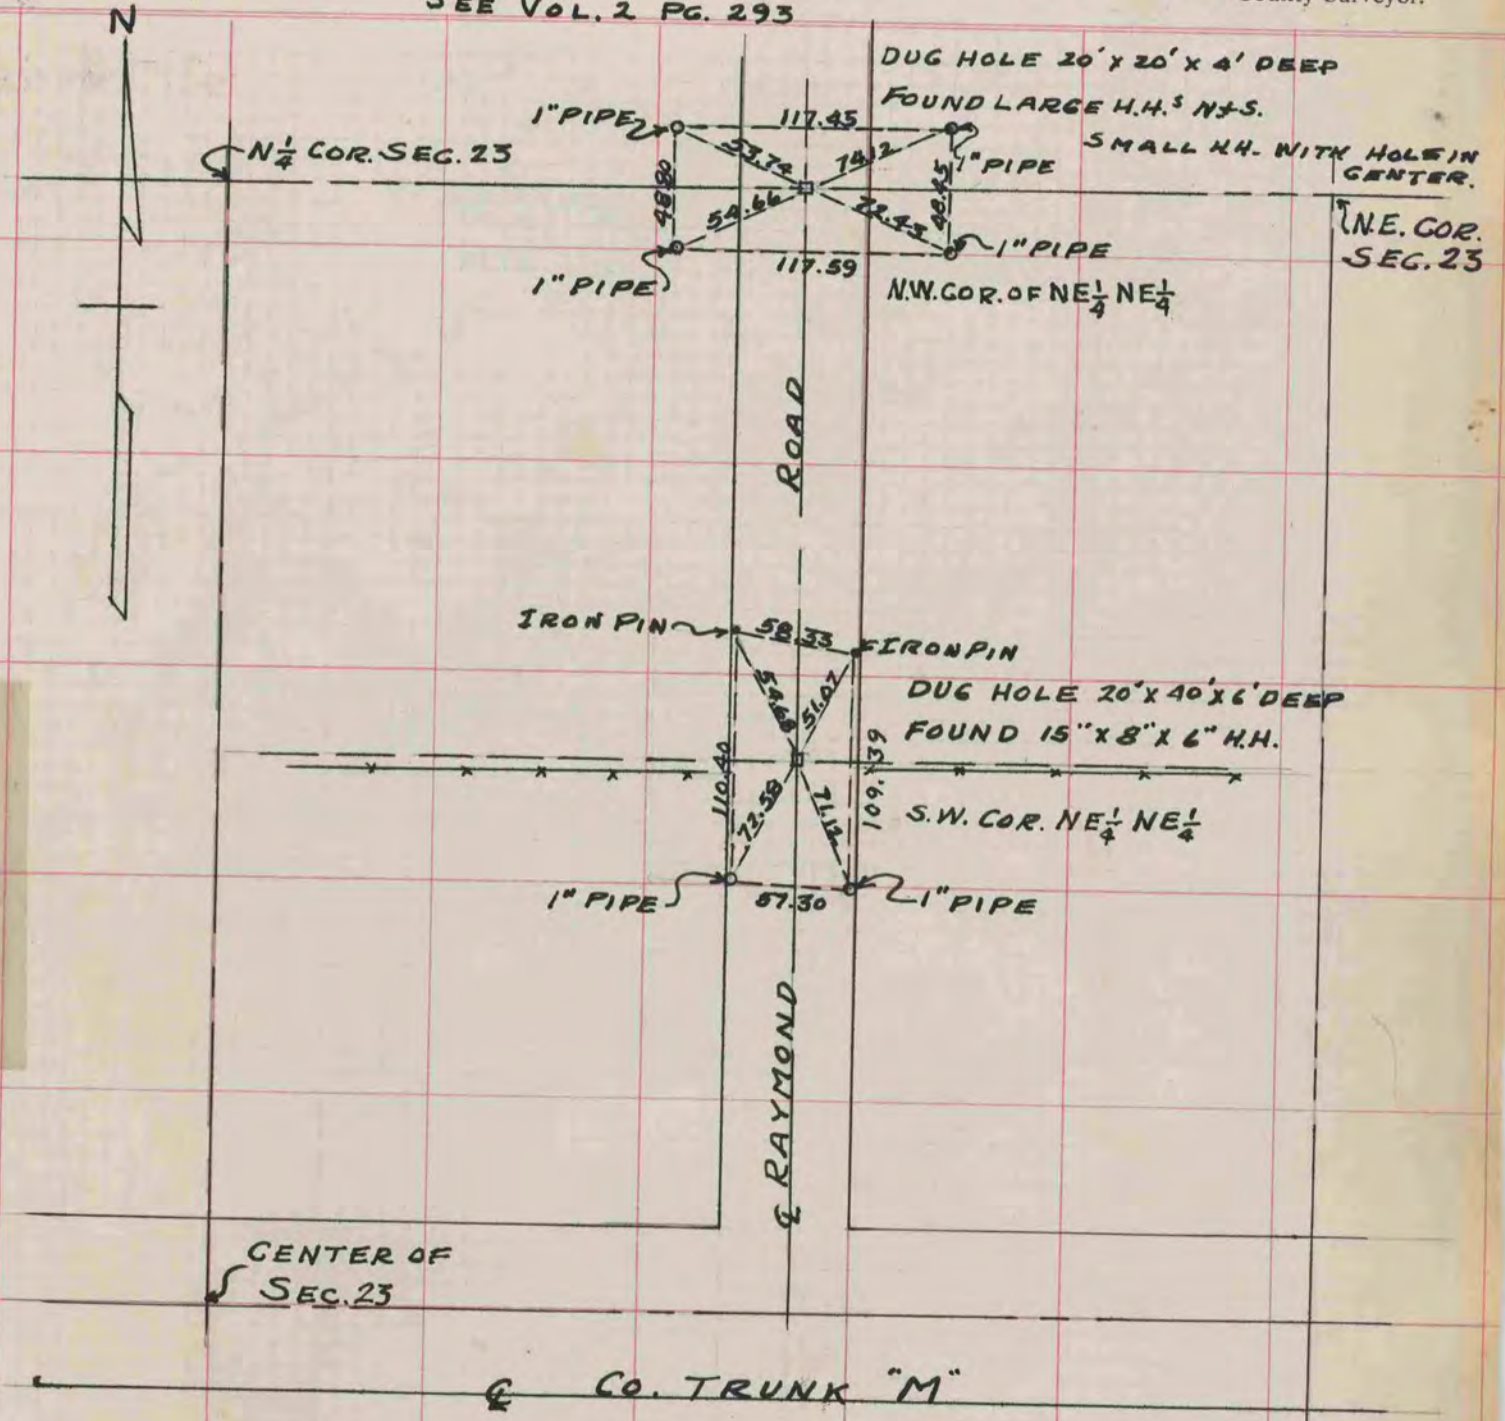 SEE VOL. 2 PG. 293
County Surveyor.
N
DUG HOLE 20' x 20' x 4' DEEP
FOUND LARGE H.H.S N & S.
SMALL H.H. WITH HOLE IN
CENTER.
1" PIPE
117.45
1" PIPE
N 1/4 COR. SEC. 23
53.74
74.12
48.80
48.45
54.66
N.E. COR.
SEC. 23
1" PIPE
117.59
1" PIPE
N.W. COR. OF NE 1/4 NE 1/4
ROAD
IRON PIN
58.33
IRON PIN
51.07
DUG HOLE 20' x 40' x 6' DEEP
FOUND 15" x 8" x 6" H.H.
110.40
109.39
72.58
71.12
S.W. COR. NE 1/4 NE 1/4
1" PIPE
57.30
1" PIPE
℄ RAYMOND
CENTER OF
SEC. 23
℄ CO. TRUNK "M"